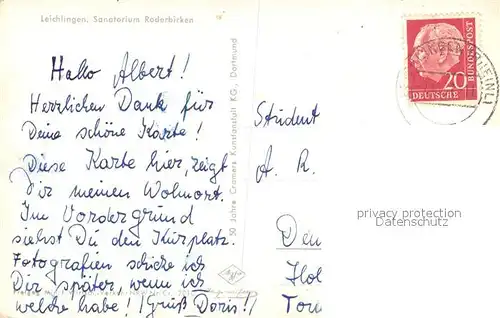 Leichlingen, Sanatorium Roderbirken
Hallo Albert!
Herzlichen Dank für
Deine schöne Karte!
Diese Karte hier, zeigt
Dir meinen Wohnort.
Im Vordergrund
siehst Du den Kurplatz.
Fotografien schicke ich
Dir später, wenn ich
welche habe! (Gruß Doris!)
50 Jahre Cramers Kunstanstalt KG., Dortmund
20
DEUTSCHE
BUNDESPOST
Student
A. R.
privacy protection
Datenschutz